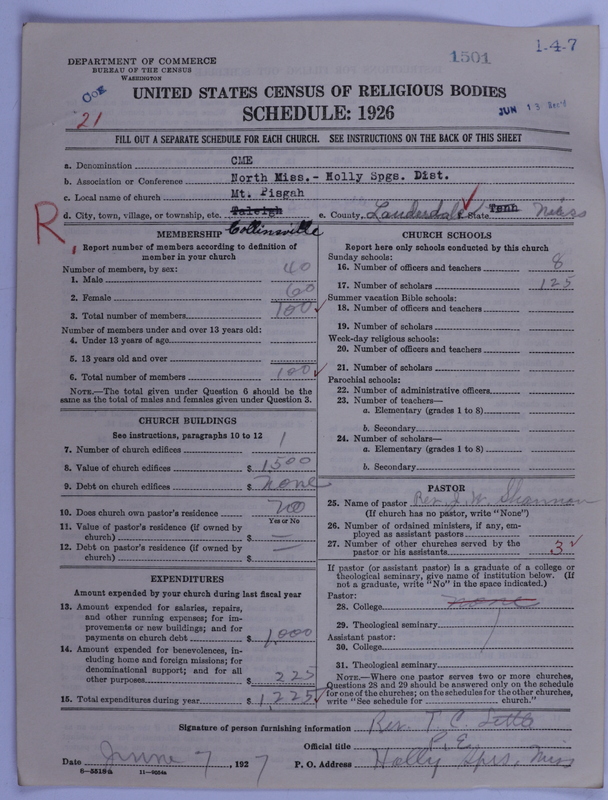 DEPARTMENT OF COMMERCE
BUREAU OF THE CENSUS
WASHINGTON
1501
1-4-7
UNITED STATES CENSUS OF RELIGIOUS BODIES
SCHEDULE: 1926
JUN 13
21
FILL OUT A SEPARATE SCHEDULE FOR EACH CHURCH. SEE INSTRUCTIONS ON THE BACK OF THIS SHEET
a. Denomination CME
b. Association or Conference North Miss.- Holly Spgs. Dist.
c. Local name of church Mt. Pisgah
R
d. City, town, village, or township, etc. Raleigh e. County, Lauderdale State Tenn Miss
Collinsville
MEMBERSHIP
Report number of members according to definition of member in your church
Number of members, by sex:
1. Male 40
2. Female 60
3. Total number of members 100
Number of members under and over 13 years old:
4. Under 13 years of age
5. 13 years old and over
6. Total number of members 100
NOTE.—The total given under Question 6 should be the same as the total of males and females given under Question 3.
CHURCH BUILDINGS
See instructions, paragraphs 10 to 12
7. Number of church edifices 1
8. Value of church edifices $ 1,500
9. Debt on church edifices $ none
10. Does church own pastor's residence? no
Yes or No
11. Value of pastor's residence (if owned by
church) $ —
12. Debt on pastor's residence (if owned by
church) $ —
EXPENDITURES
Amount expended by your church during last fiscal year
13. Amount expended for salaries, repairs,
and other running expenses; for im-
provements or new buildings; and for
payments on church debt $ 1,000
14. Amount expended for benevolences, in-
cluding home and foreign missions; for
denominational support; and for all
other purposes $ 225
15. Total expenditures during year $ 1,225
CHURCH SCHOOLS
Report here only schools conducted by this church
Sunday schools:
16. Number of officers and teachers 8
17. Number of scholars 125
Summer vacation Bible schools:
18. Number of officers and teachers
19. Number of scholars
Week-day religious schools:
20. Number of officers and teachers
21. Number of scholars
Parochial schools:
22. Number of administrative officers
23. Number of teachers—
a. Elementary (grades 1 to 8)
b. Secondary
24. Number of scholars—
a. Elementary (grades 1 to 8)
b. Secondary
PASTOR
25. Name of pastor Rev. J. W. Shannon
(If church has no pastor, write "None")
26. Number of ordained ministers, if any, em-
ployed as assistant pastors
27. Number of other churches served by the
pastor or his assistants 3
If pastor (or assistant pastor) is a graduate of a college or
theological seminary, give name of institution below. (If
not a graduate, write "No" in the space indicated.)
Pastor:
28. College none
29. Theological seminary
Assistant pastor:
30. College
31. Theological seminary
NOTE.—Where one pastor serves two or more churches,
Questions 28 and 29 should be answered only on the schedule
for one of the churches; on the schedules for the other churches,
write "See schedule for church."
Signature of person furnishing information Rev. T. C.
Official title P. E.
Date June 7, 1927 P. O. Address Holly Spgs, Miss
8-5518a 11-9054a